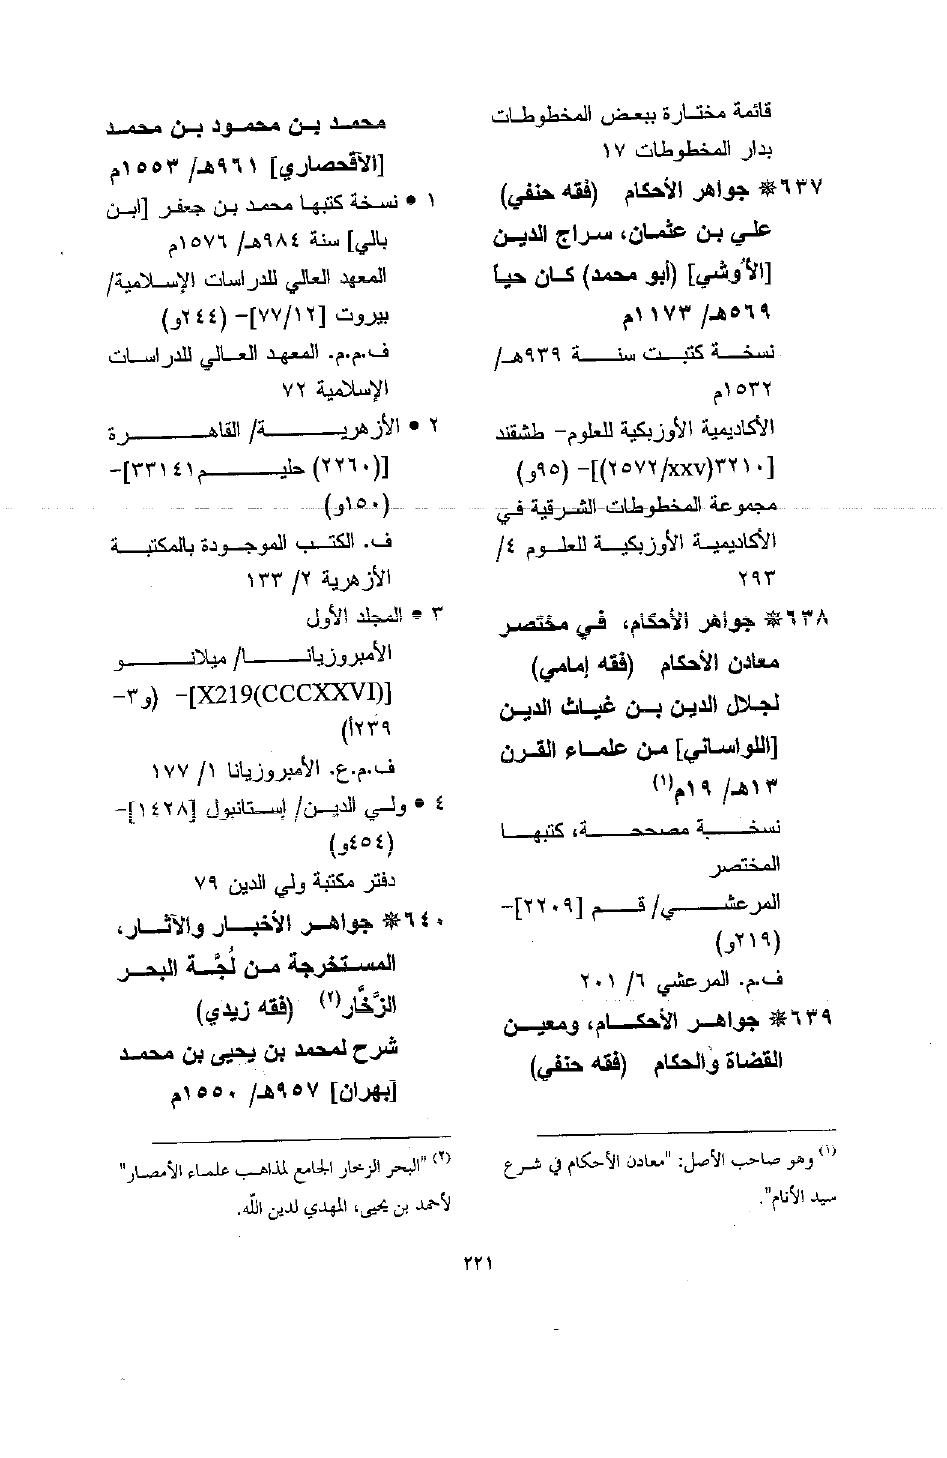 قائمة مختارة ببعض المخطوطات
بدار المخطوطات ١٧
٦٣٧* جواهر الأحكام (فقه حنفي)
علي بن عثمان، سراج الدين
[الأوشي] (أبو محمد) كان حيا
٥٦٩هـ/ ١١٧٣م
نسخة كتبت سنة ٩٣٩هـ/
١٥٣٢م
الأكاديمية الأوزبكية للعلوم- طشقند
[٣٢١٠(٢٥٧٢/xxv)]- (٩٥و)
مجموعة المخطوطات الشرقية في
الأكاديمية الأوزبكية للعلوم ٤/
٢٩٣
٦٣٨* جواهر الأحكام، في مختصر
معادن الأحكام (فقه إمامي)
لجلال الدين بن غياث الدين
[اللواساني] من علماء القرن
١٣هـ/ ١٩م(١)
نسخة مصححة، كتبها
المختصر
المرعشي/ قم [٢٢٠٩]-
(٢١٩و)
ف.م. المرعشي ٦/ ٢٠١
٦٣٩* جواهر الأحكام، ومعين
القضاة والحكام (فقه حنفي)
(١) وهو صاحب الأصل: "معادن الأحكام في شرع
سيد الأنام".
محمد بن محمود بن محمد
[الآقحصاري] ٩٦١هـ/ ١٥٥٣م
١ • نسخة كتبها محمد بن جعفر [ابن
بالي] سنة ٩٨٤هـ/ ١٥٧٦م
المعهد العالي للدراسات الإسلامية/
بيروت [٧٧/١٢]- (٢٤٤و)
ف.م.م. المعهد العالي للدراسات
الإسلامية ٧٢
٢ • الأزهرية/ القاهرة
[(٢٢٦٠) حليم ٣٣١٤١]-
(١٥٠و)
ف. الكتب الموجودة بالمكتبة
الأزهرية ٢/ ١٣٣
٣ • المجلد الأول
الأمبروزيانا/ ميلانو
[X219(CCCXXVI)]- (و٣-
٢٣٩أ)
ف.م.ع. الأمبروزيانا ١/ ١٧٧
٤ • ولي الدين/ إستانبول [١٤٢٨]-
(٤٥٤و)
دفتر مكتبة ولي الدين ٧٩
٦٤٠* جواهر الأخبار والآثار،
المستخرجة من لُجَّة البحر
الزَّخَّار(٢) (فقه زيدي)
شرح لمحمد بن يحيى بن محمد
[بهران] ٩٥٧هـ/ ١٥٥٠م
(٢) "البحر الزخار الجامع لمذاهب علماء الأمصار"
لأحمد بن يحيى، المهدي لدين الله.
٢٢١